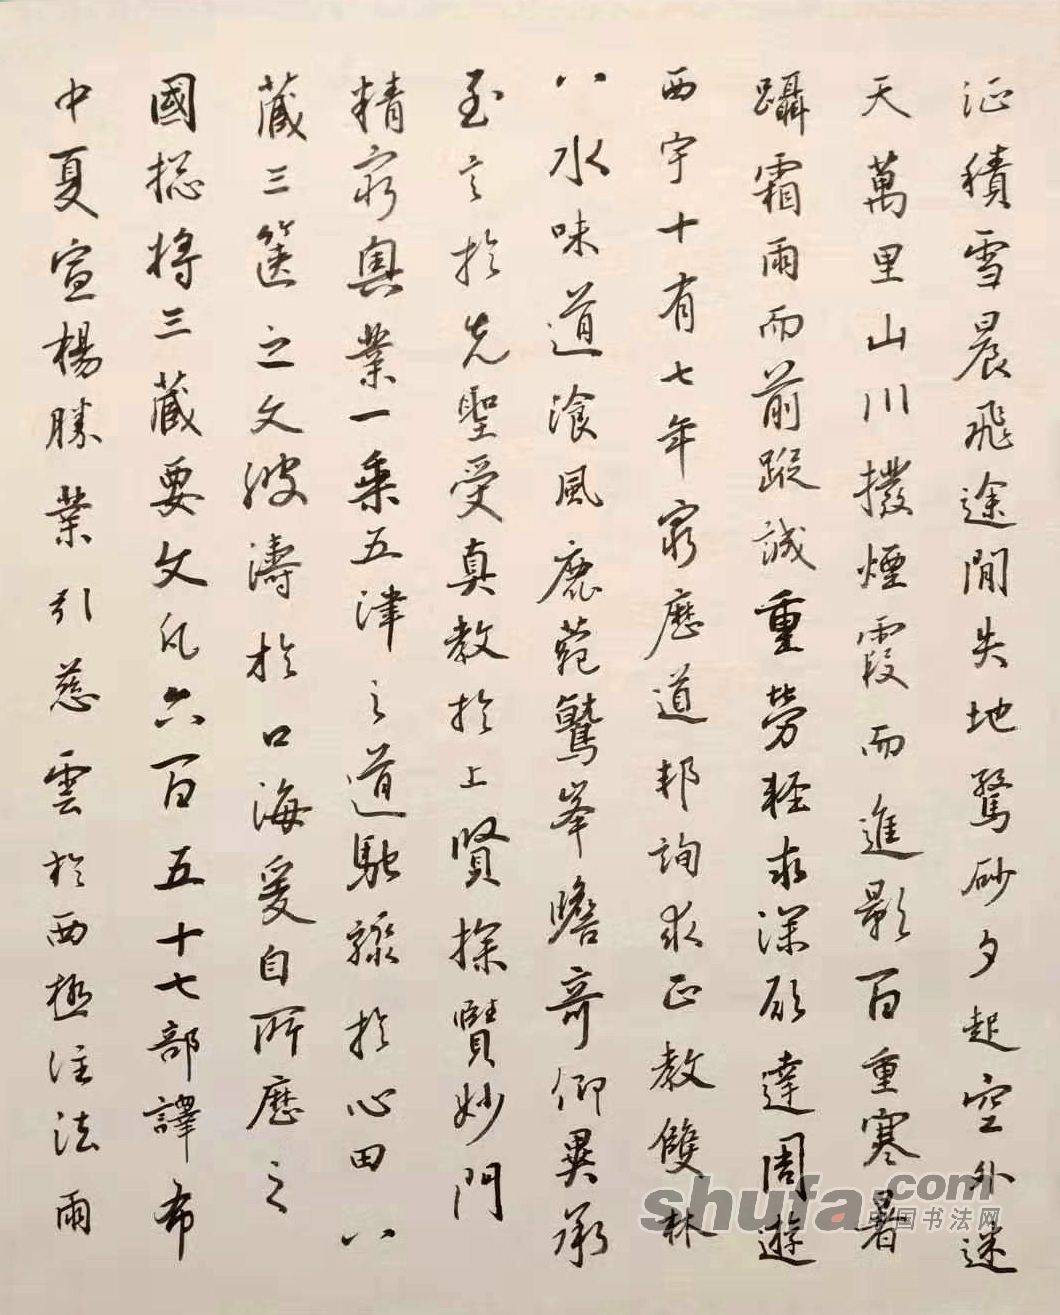 征積雪晨飛途閒失地驚砂夕起空外迷
天萬里山川撥煙霞而進影百重寒暑
躡霜雨而前蹤誠重勞輕求深願達周遊
西宇十有七年窮歷道邦詢求正教雙林
八水味道飡風鹿菀鷲峯瞻奇仰異承
至言於先聖受真教於上賢探賾妙門
精窮奧業一乘五津之道馳驟於心田八
藏三篋之文波濤於口海爰自所歷之
國揔將三藏要文凡六百五十七部譯布
中夏宣楊勝業引慈雲於西極注法雨
shufa.com
中国书法网